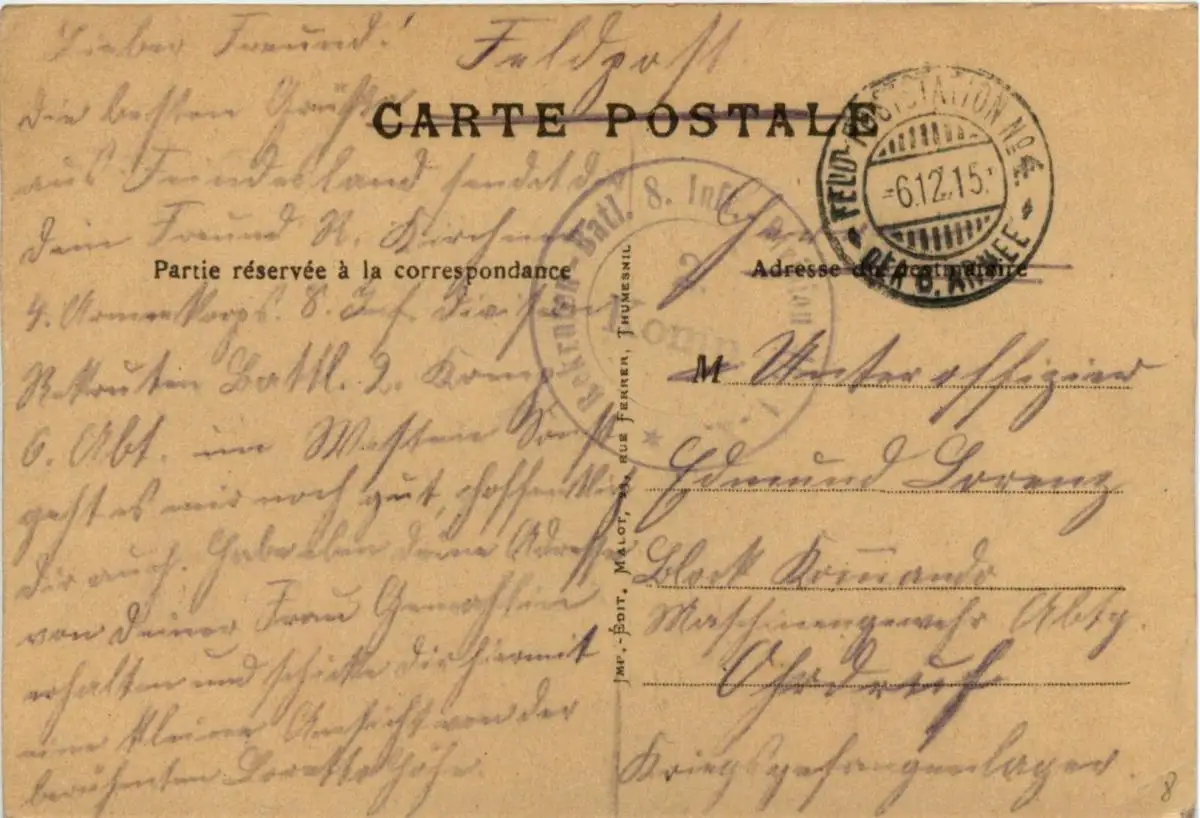 Feldpost
Lieber Freund!
die besten Grüße
aus Feindesland sendet dir
dein Freund R. Kirchner
4. Armeekorps. 8. Inf. Division
Rekruten Battl. 2. Komp.
6. Abt. im Westen Sonst
geht es mir noch gut, hoffentlich
dir auch. Habe eben deine Adresse
von deiner Frau Gemahlin
erhalten und schicke dir hiermit
eine kleine Ansicht von der
berühmten Lorettohöhe.
CARTE POSTALE
Partie réservée à la correspondance
Adresse du destinataire
FELD-POSTSTATION No 4.
-6.12.15.
DER 6. ARMEE
Rekruten-Batl. 8. Inf. Division
2.
Komp.
IMP.-ÉDIT. MALOT, RUE FERRER, THUMESNIL
M Unteroffizier
Edmund Lorenz
Block Kommando
Maschinengewehr Abtg.
Ohrdruf
Kriegsgefangenlager.
8